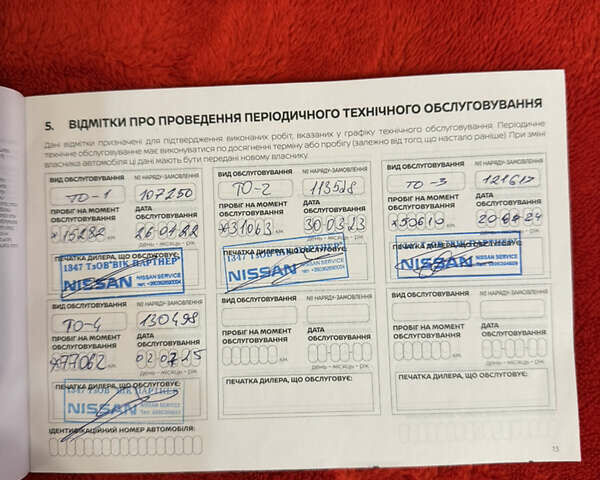 5. ВІДМІТКИ ПРО ПРОВЕДЕННЯ ПЕРІОДИЧНОГО ТЕХНІЧНОГО ОБСЛУГОВУВАННЯ
Дані відмітки призначені для підтвердження виконаних робіт, вказаних у графіку технічного обслуговування. Періодичне
технічне обслуговування має виконуватися по досягненні терміну або пробігу (залежно від того, що настало раніше) При зміні
власника автомобіля ці дані мають бути передані новому власнику.
ВИД ОБСЛУГОВУВАННЯ № НАРЯДУ-ЗАМОВЛЕННЯ
ТО-1 107250
ПРОБІГ НА МОМЕНТ ОБСЛУГОВУВАННЯ
ДАТА ОБСЛУГОВУВАННЯ
15282 км. 26 01 22
день - місяць - рік
ПЕЧАТКА ДИЛЕРА, ЩО ОБСЛУГОВУЄ:
1847 ТзОВ"ВІК ПАРТНЕР"
NISSAN NISSAN SERVICE
ВИД ОБСЛУГОВУВАННЯ № НАРЯДУ-ЗАМОВЛЕННЯ
ТО-2
ПРОБІГ НА МОМЕНТ ОБСЛУГОВУВАННЯ
ДАТА ОБСЛУГОВУВАННЯ
31063 км. 30 03 23
день - місяць - рік
ПЕЧАТКА ДИЛЕРА, ЩО ОБСЛУГОВУЄ:
NISSAN NISSAN SERVICE
ВИД ОБСЛУГОВУВАННЯ № НАРЯДУ-ЗАМОВЛЕННЯ
ТО-3
ПРОБІГ НА МОМЕНТ ОБСЛУГОВУВАННЯ
ДАТА ОБСЛУГОВУВАННЯ
день - місяць - рік
ПЕЧАТКА ДИЛЕРА, ЩО ОБСЛУГОВУЄ:
NISSAN NISSAN SERVICE
ВИД ОБСЛУГОВУВАННЯ № НАРЯДУ-ЗАМОВЛЕННЯ
ТО-4 130498
ПРОБІГ НА МОМЕНТ ОБСЛУГОВУВАННЯ
ДАТА ОБСЛУГОВУВАННЯ
77062 км. 02 07 25
день - місяць - рік
ПЕЧАТКА ДИЛЕРА, ЩО ОБСЛУГОВУЄ:
1847 ТзОВ"ВІК ПАРТНЕР"
NISSAN NISSAN SERVICE
ВИД ОБСЛУГОВУВАННЯ № НАРЯДУ-ЗАМОВЛЕННЯ
ПРОБІГ НА МОМЕНТ ОБСЛУГОВУВАННЯ
ДАТА ОБСЛУГОВУВАННЯ
км. день - місяць - рік
ПЕЧАТКА ДИЛЕРА, ЩО ОБСЛУГОВУЄ:
ВИД ОБСЛУГОВУВАННЯ № НАРЯДУ-ЗАМОВЛЕННЯ
ПРОБІГ НА МОМЕНТ ОБСЛУГОВУВАННЯ
ДАТА ОБСЛУГОВУВАННЯ
км. день - місяць - рік
ПЕЧАТКА ДИЛЕРА, ЩО ОБСЛУГОВУЄ:
ІДЕНТИФІКАЦІЙНИЙ НОМЕР АВТОМОБІЛЯ:
13